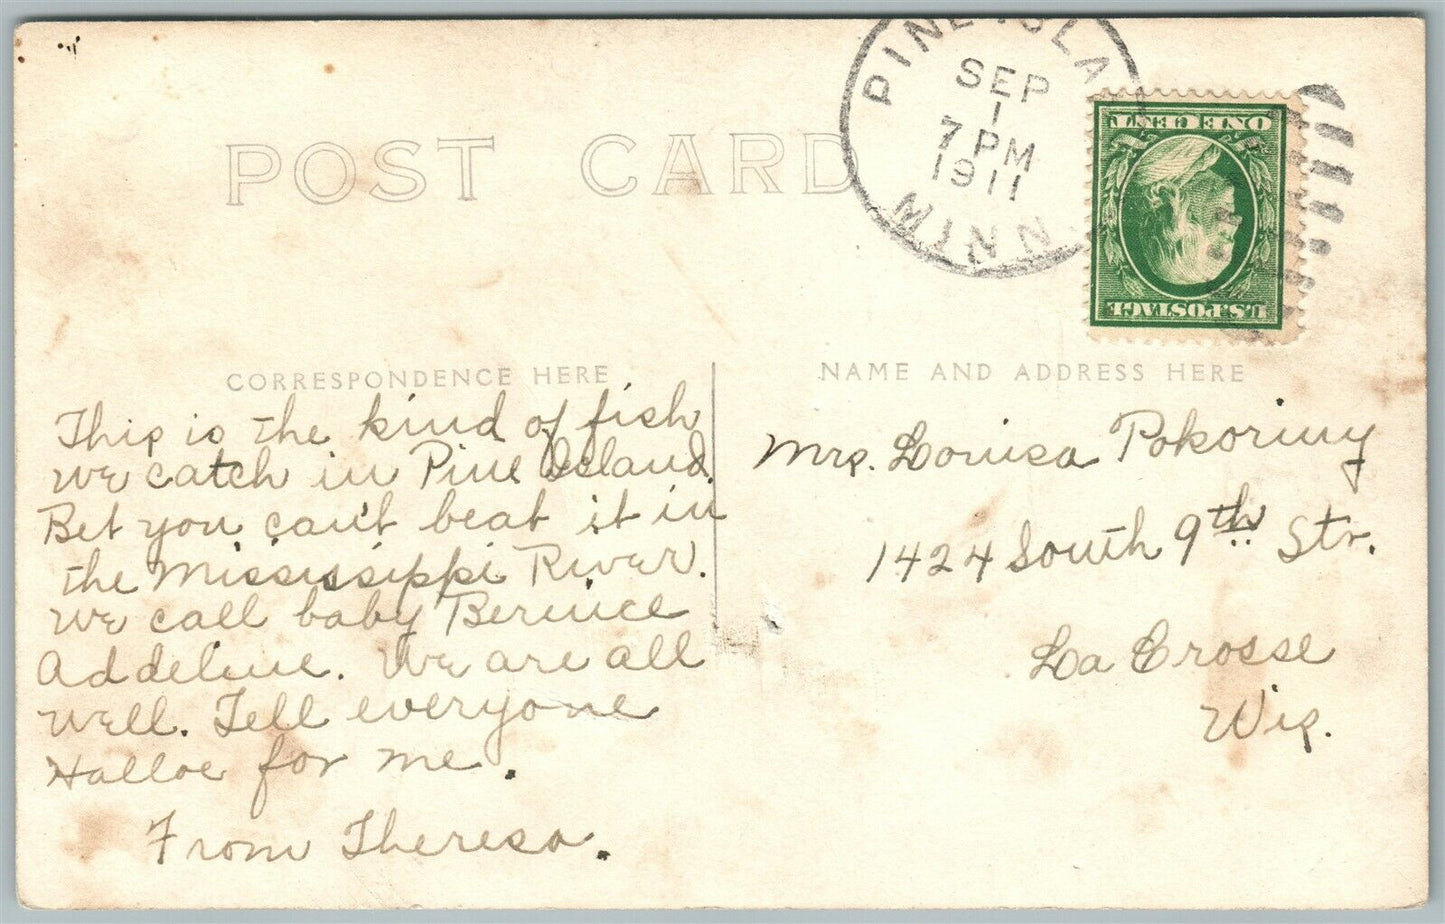 POST CARD
PINE ISLA
SEP
1
7 PM
1911
MINN
ONE CENT
U.S. POSTAGE
CORRESPONDENCE HERE
This is the kind of fish
we catch in Pine Island.
Bet you can't beat it in
the Mississippi River.
We call baby Bernice
Addeline. We are all
well. Tell everyone
Halloe for me.
From Theresa.
NAME AND ADDRESS HERE
Mrs. Louisa Pokoriny
1424 South 9th Str.
La Crosse
Wis.